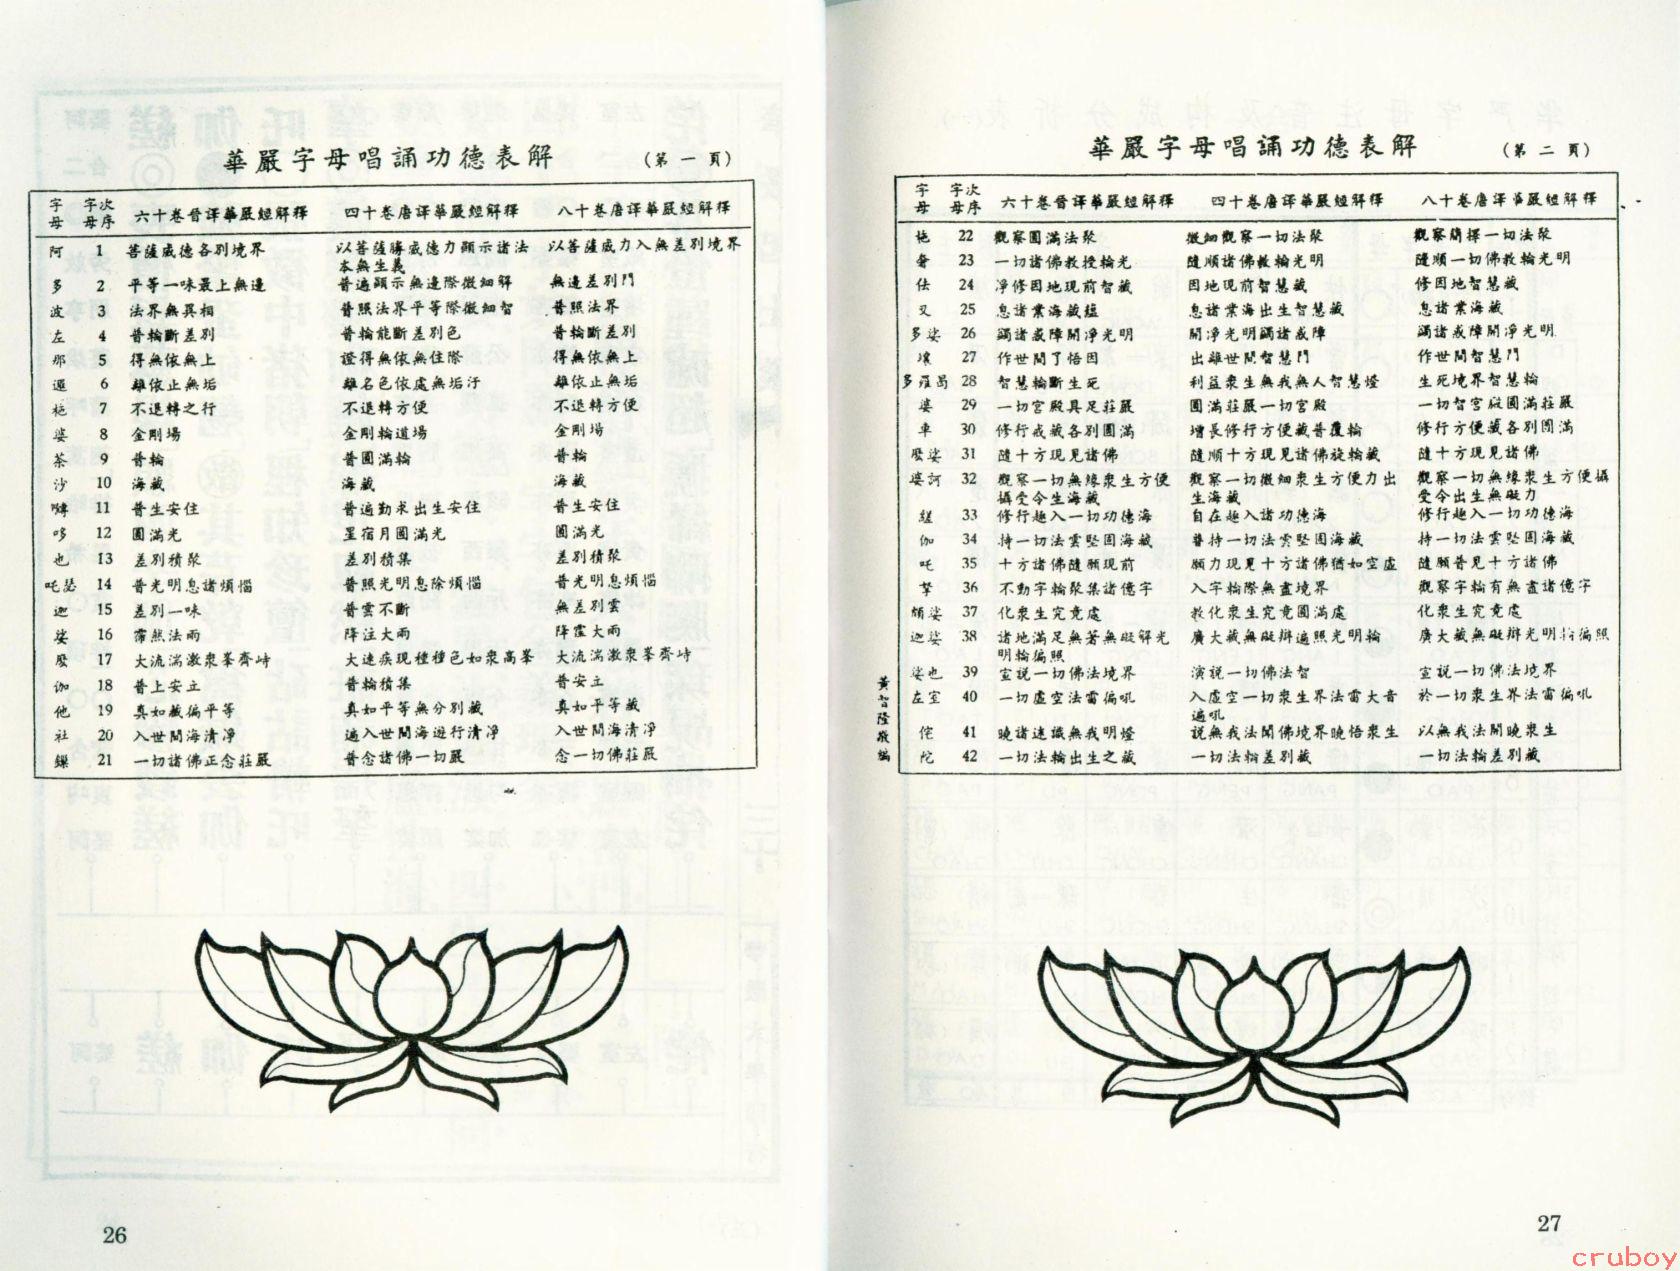 華嚴字母唱誦功德表解 (第一頁)
字母 字母次序 六十卷晉譯華嚴經解釋 四十卷唐譯華嚴經解釋 八十卷唐譯華嚴經解釋
阿 1 菩薩威德各別境界 以菩薩勝威德力顯示諸法 以菩薩威力入無差別境界
本無生義
多 2 平等一味最上無邊 普遍顯示無邊際微細解 無邊差別門
波 3 法界無異相 普照法界平等際微細智 普照法界
左 4 普輪斷差別 普輪能斷差別色 普輪斷差別
那 5 得無依無上 證得無依無住際 得無依無上
邏 6 離依止無垢 離名色依處無垢汙 離依止無垢
柂 7 不退轉之行 不退轉方便 不退轉方便
婆 8 金剛場 金剛輪道場 金剛場
茶 9 普輪 普圓滿輪 普輪
沙 10 海藏 海藏 海藏
嚩 11 普生安住 普遍勤求出生安住 普生安住
哆 12 圓滿光 星宿月圓滿光 圓滿光
也 13 差別積聚 差別積集 差別積聚
吒瑟 14 普光明息諸煩惱 普照光明息除煩惱 普光明息煩惱
迦 15 差別一味 普雲不斷 無差別雲
娑 16 霈然法雨 降注大雨 降霔大雨
麼 17 大流湍激衆峯齊峙 大速疾現種種色如衆高峯 大流湍激衆峯齊峙
伽 18 普上安立 普輪積集 普安立
他 19 真如藏徧平等 真如平等無分別藏 真如平等藏
社 20 入世間海清淨 遍入世間海遊行清淨 入世間海清淨
鏁 21 一切諸佛正念莊嚴 普念諸佛一切嚴 念一切佛莊嚴
26
華嚴字母唱誦功德表解 (第二頁)
字母 字母次序 六十卷晉譯華嚴經解釋 四十卷唐譯華嚴經解釋 八十卷唐譯華嚴經解釋
柂 22 觀察圓滿法聚 微細觀察一切法聚 觀察簡擇一切法聚
奢 23 一切諸佛教授輪光 隨順諸佛教輪光明 隨順一切佛教輪光明
佉 24 淨修因地現前智藏 因地現前智慧藏 修因地智慧藏
叉 25 息諸業海藏蘊 息諸業海出生智慧藏 息諸業海藏
多娑 26 蠲諸惑障開淨光明 開淨光明蠲諸惑障 蠲諸惑障開淨光明
壤 27 作世間了悟因 出離世間智慧門 作世間智慧門
多羅曷 28 智慧輪斷生死 利益衆生無我無人智慧燈 生死境界智慧輪
婆 29 一切宮殿具足莊嚴 圓滿莊嚴一切宮殿 一切智宮殿圓滿莊嚴
車 30 修行戒藏各別圓滿 增長修行方便藏普覆輪 修行方便藏各別圓滿
麼娑 31 隨十方現見諸佛 隨順十方現見諸佛旋輪藏 隨十方現見諸佛
婆訶 32 觀察一切無緣衆生方便 觀察一切微細衆生方便力出 觀察一切無緣衆生方便攝
攝受令生海藏 生海藏 受令出生無礙力
縒 33 修行趣入一切功德海 自在趣入諸功德海 修行趣入一切功德海
伽 34 持一切法雲堅固海藏 普持一切法雲堅固海藏 持一切法雲堅固海藏
吒 35 十方諸佛隨願現前 願力現見十方諸佛猶如空虛 隨願普見十方諸佛
拏 36 不動字輪聚集諸億字 入字輪際無盡境界 觀察字輪有無盡諸億字
頗娑 37 化衆生究竟處 教化衆生究竟圓滿處 化衆生究竟處
迦娑 38 諸地滿足無著無礙解光 廣大藏無礙辯遍照光明輪 廣大藏無礙辯光明輪徧照
明輪徧照
娑也 39 宣説一切佛法境界 演説一切佛法智 宣説一切佛法境界
左室 40 一切虛空法雷徧吼 入虛空一切衆生界法雷大音 於一切衆生界法雷徧吼
遍吼
侘 41 曉諸迷識無我明燈 説無我法開佛境界曉悟衆生 以無我法開曉衆生
陀 42 一切法輪出生之藏 一切法輪差別藏 一切法輪差別藏
黃智隆敬編
27
cruboy